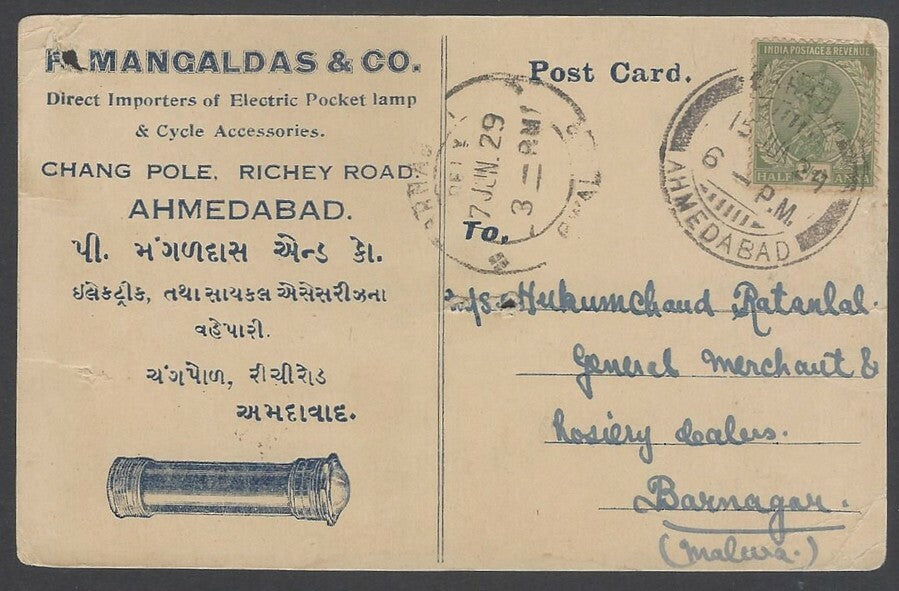 P. MANGALDAS & CO.
Direct Importers of Electric Pocket lamp
& Cycle Accessories.
CHANG POLE, RICHEY ROAD,
AHMEDABAD.
પી. મંગળદાસ એન્ડ કો.
ઇલેક્ટ્રીક, તથા સાયકલ એસેસરીઝના
વહેપારી.
ચંગપોળ, રીચીરોડ
અમદાવાદ.
Post Card.
INDIA POSTAGE & REVENUE
HALF ANNA
15 JUN. 29
6 — P.M.
AHMEDABAD
17 JUN. 29
3 =
To,
M/s. Hukumchand Ratanlal.
General Merchant &
hosiery dealers.
Barnagar.
(Malwa.)